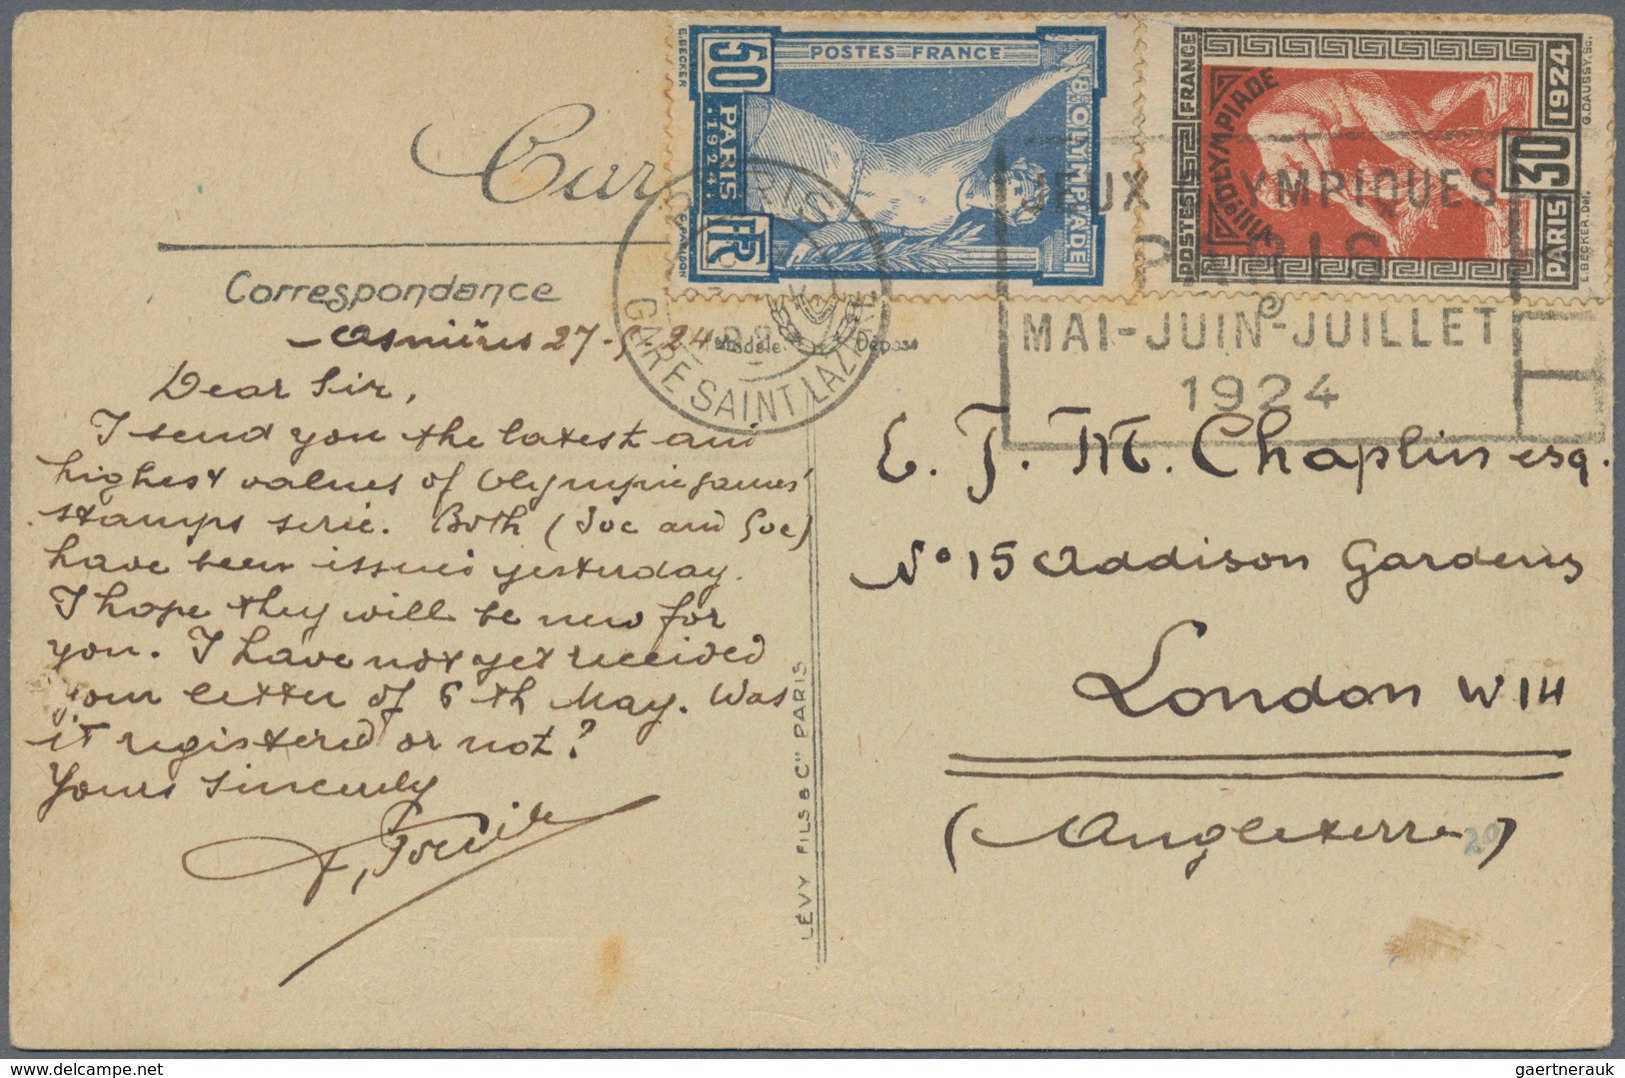 POSTES FRANCE
50
PARIS
1924
FR
8e OLYMPIADE
E. BECKER
E. PARISON
POSTES FRANCE
VIIIe OLYMPIADE
30
PARIS 1924
E. BECKER. Del.
G. DAUSSY. Sc.
JEUX OLYMPIQUES
PARIS
MAI-JUIN-JUILLET
1924
PARIS
GARE SAINT LAZARE
Correspondance
Modèle Déposé
Asnières 27-5-24
Dear Sir,
I send you the latest and
highest values of Olympic games'
stamps serie. Both (30c and 50c)
have been issued yesterday.
I hope they will be new for
you. I have not yet received
your letter of 6th May. Was
it registered or not?
Yours sincerely
LÉVY FILS & Cie PARIS
E. J. M. Chaplin esq.
No 15 Addison Gardens
London W 14
(Angleterre)
20
gaertnerauk